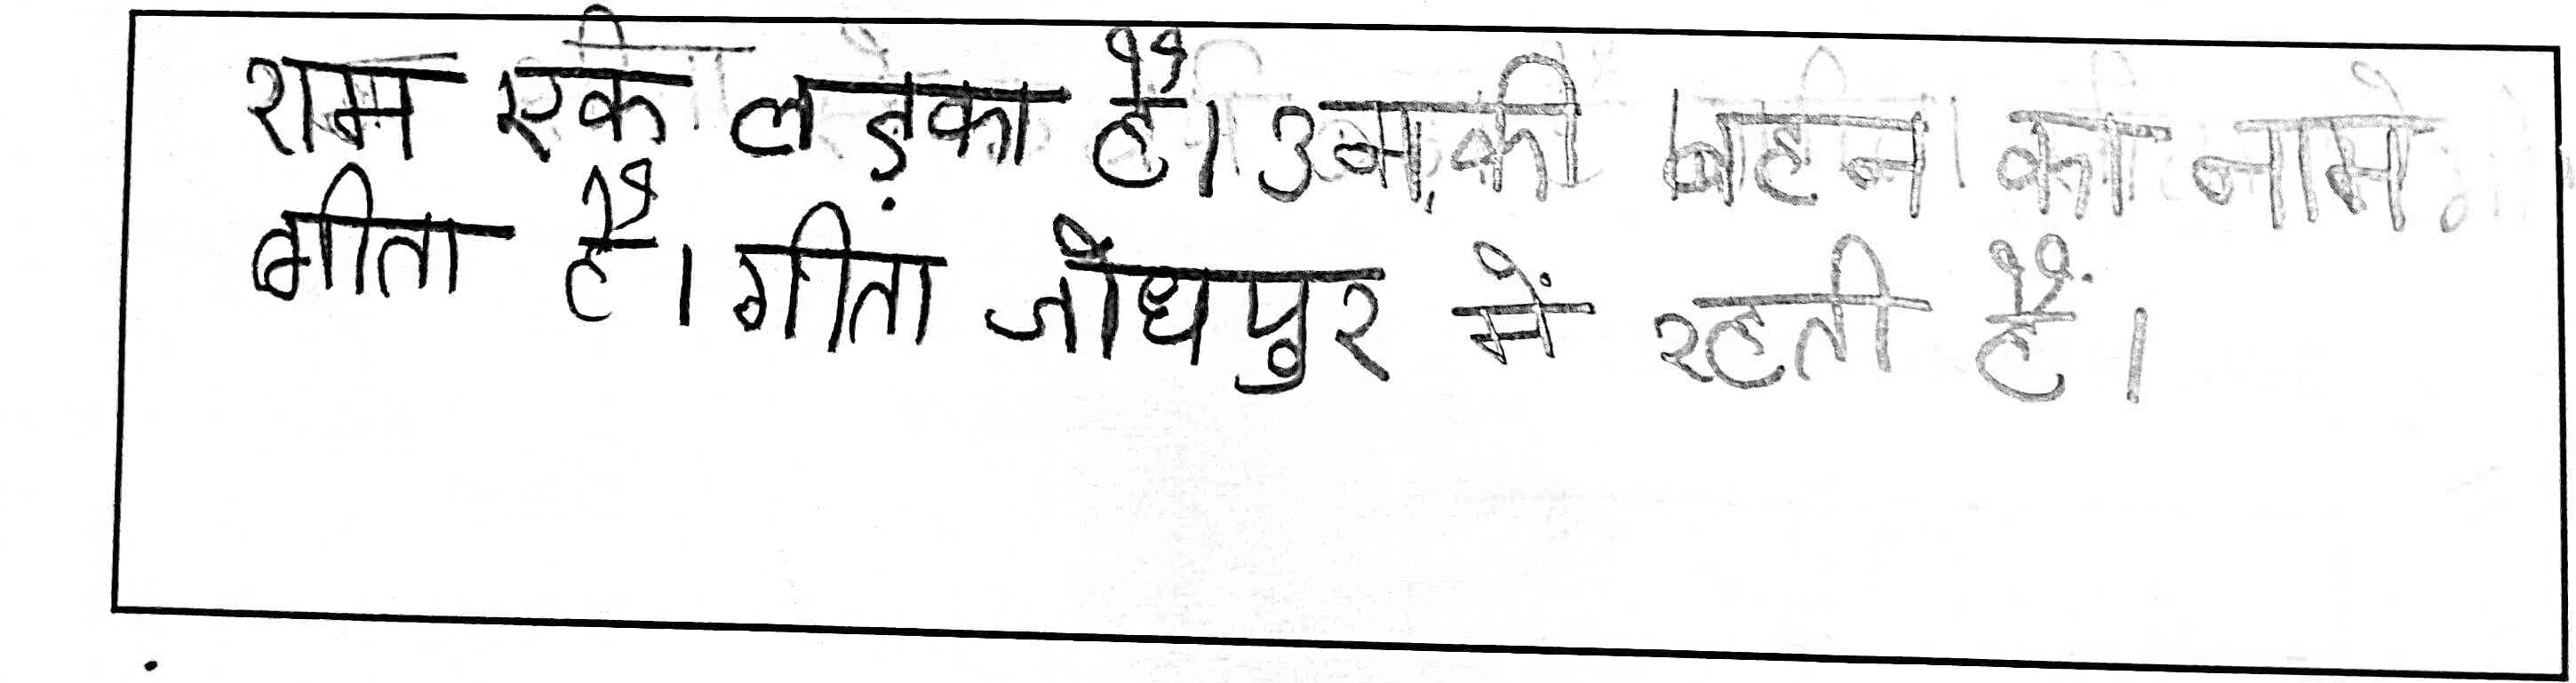 राम एक लड़का है। उसकी बहन का नाम
गीता है। गीता जोधपुर में रहती है।